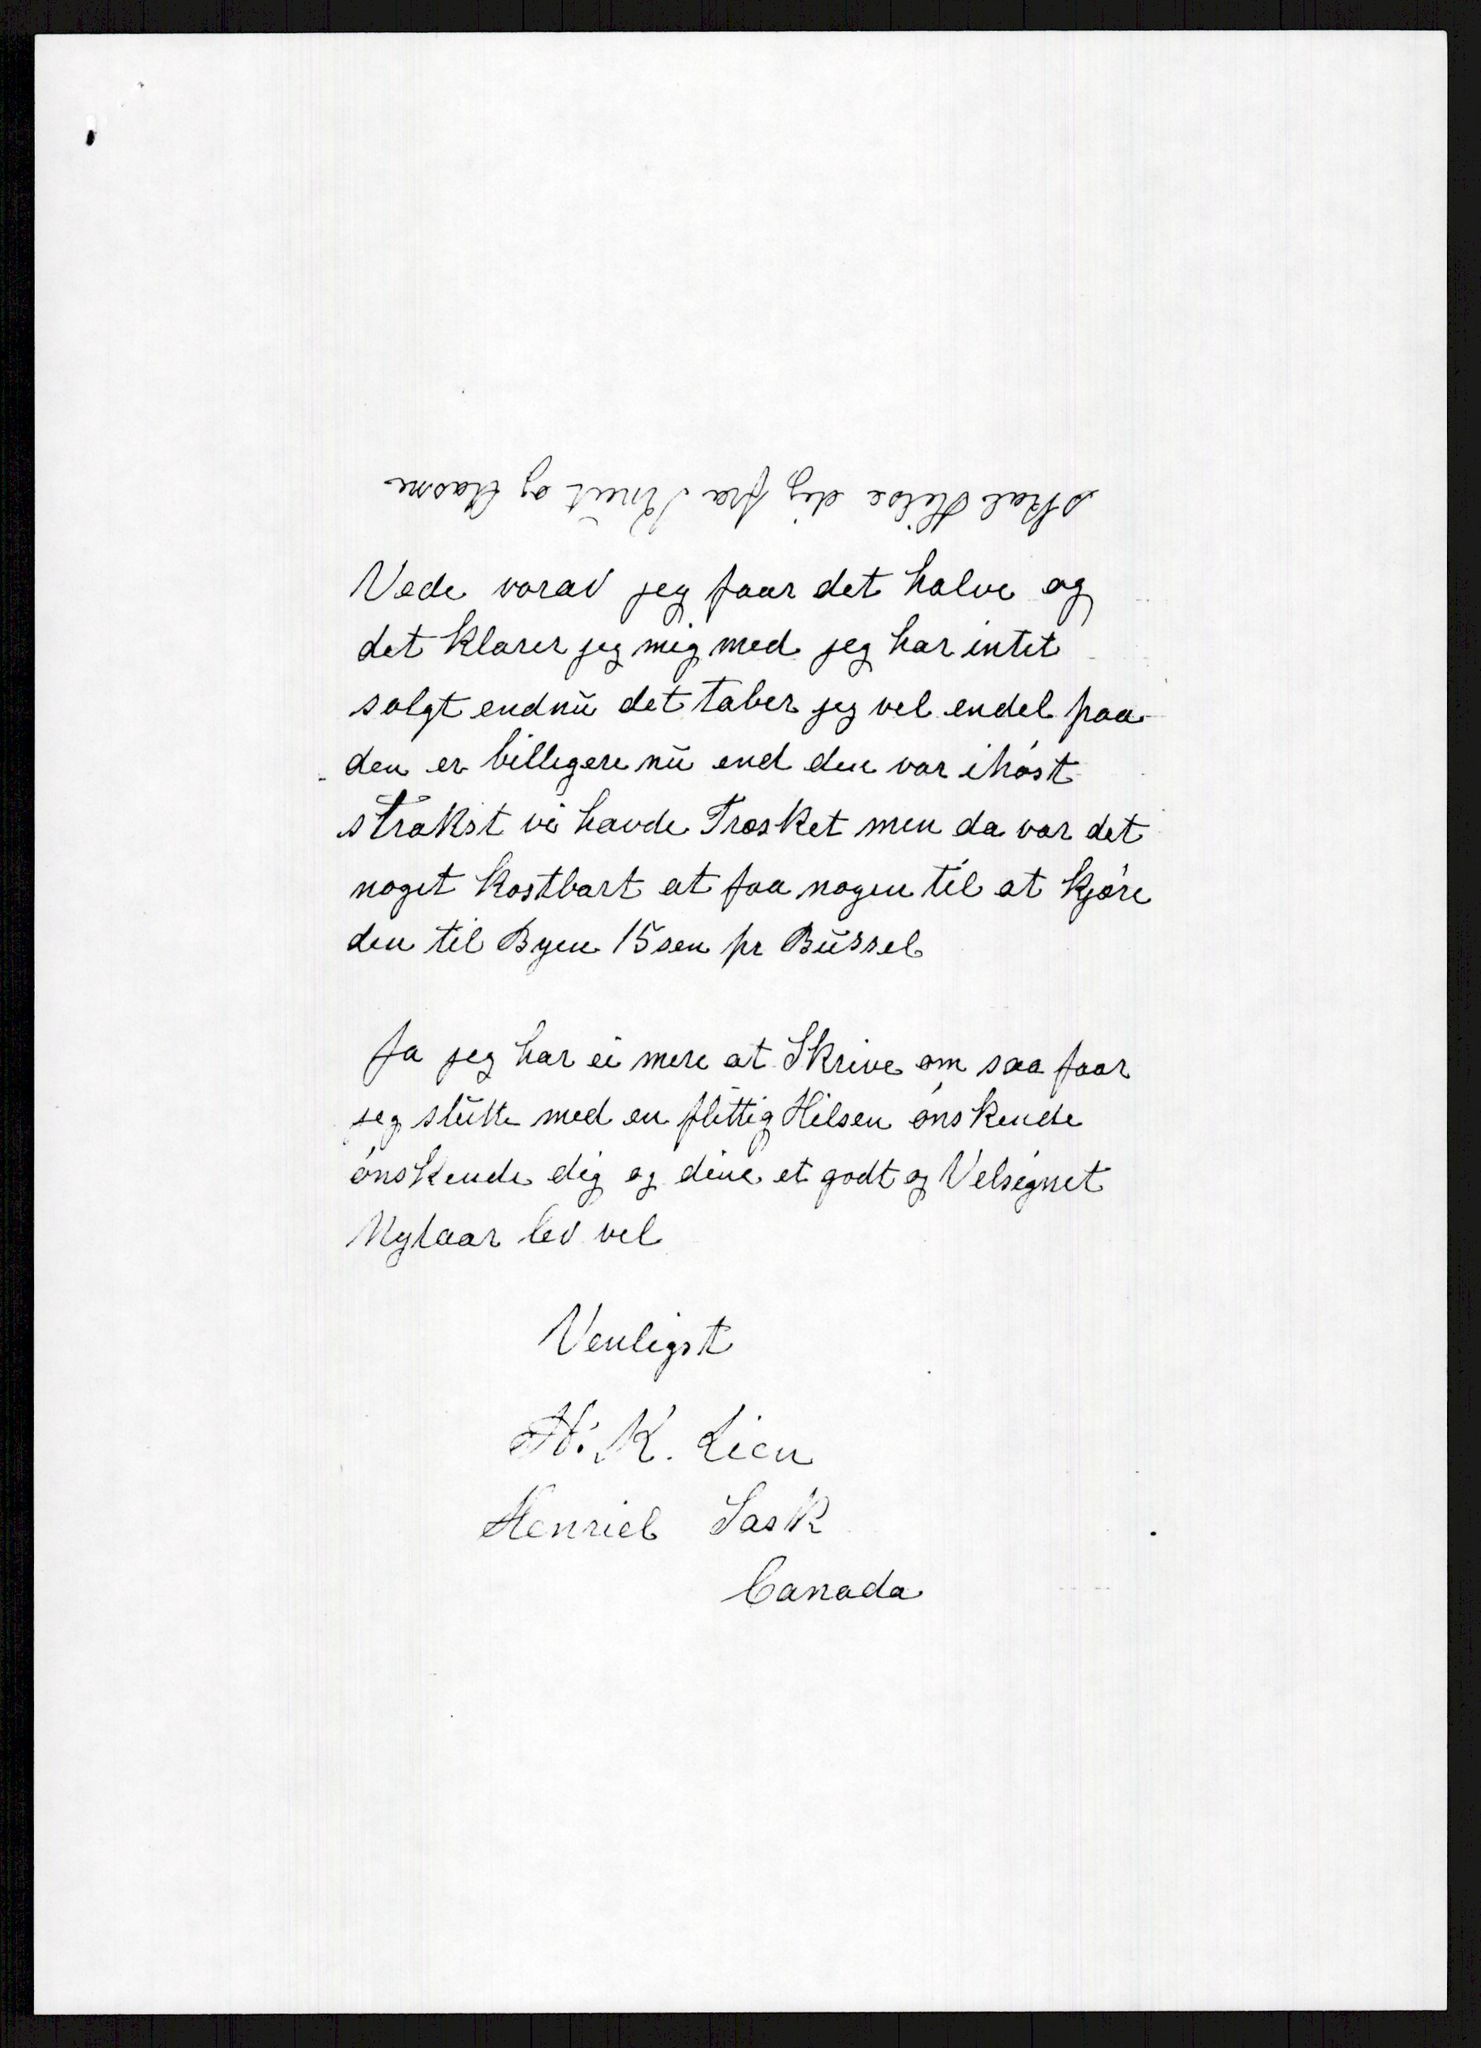 skal Hilse dig fra Knut og
Vede vorav jeg faar det halve og
det klarer jeg mig med jeg har intet
solgt endnu det taber jeg vel endel paa
den er billigere nu end den var ihøst
strakst vi havde Træsket men da var det
noget kostbart at faa nogen til at kjøre
den til Byen 15 sen pr Bussel
Ja jeg har ei mere at Skrive om saa faar
jeg slutte med en flittig Hilsen ønskende
ønskende dig og dine et godt og Velsignet
Nytaar lev vel
Venligst
H. K. Lien
Henriel Sask
Canada